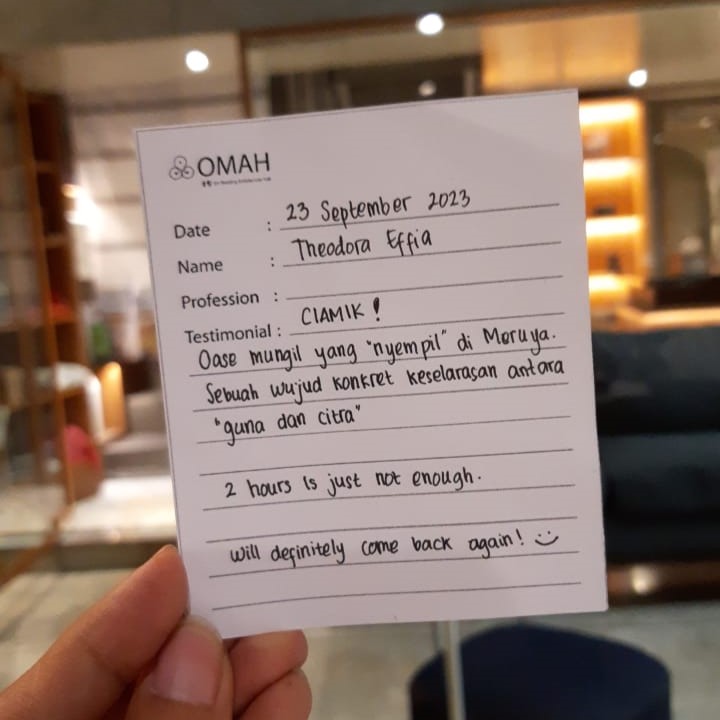 OMAH
Date : 23 September 2023
Name : Theodora Effia
Profession :
Testimonial : CIAMIK !
Oase mungil yang "nyempil" di Meruya.
Sebuah wujud konkret keselarasan antara
"guna dan citra"
2 hours is just not enough.
Will definitely come back again! :)